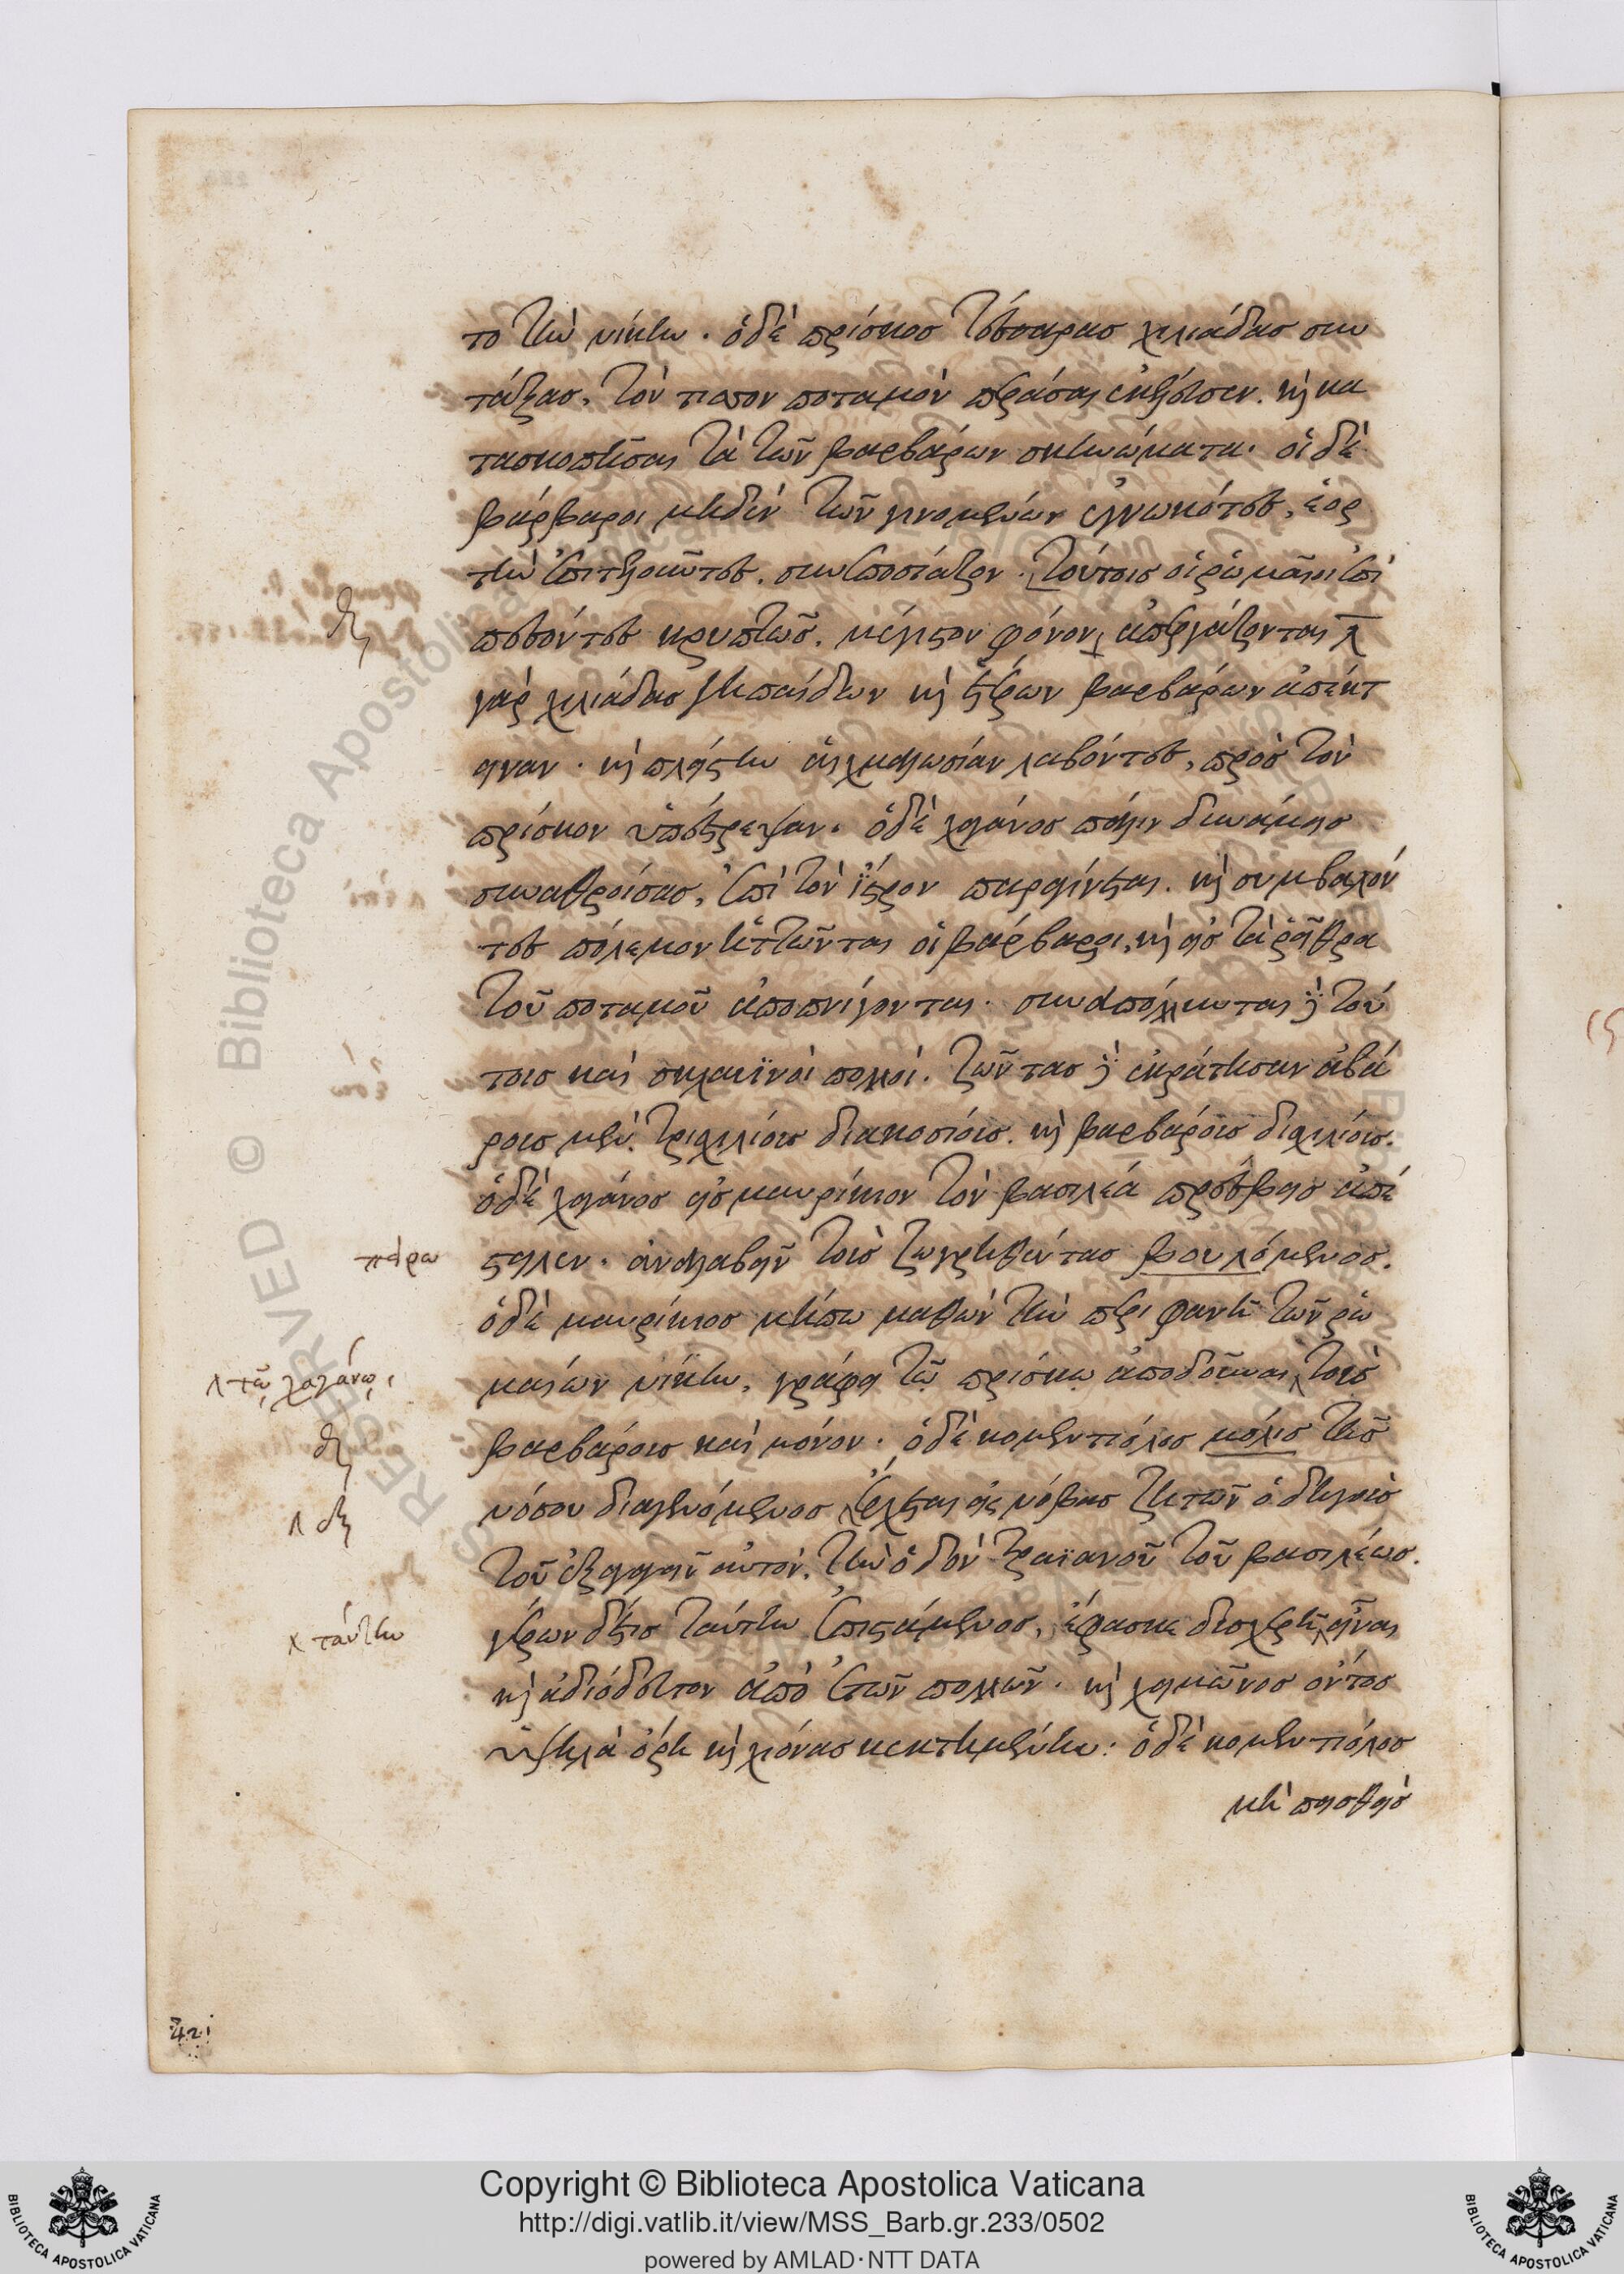 το τὴν νίκην · ὁ δὲ πρίσκος τέσσαρας χιλιάδας συν
τάξας, τὸν τισσον ποταμὸν περάσαι ἐκέλευσεν. καὶ κα
τασκοπῆσαι τὰ τῶν βαρβάρων σκηνώματα · οἱ δὲ
βάρβαροι μηδὲν τῶν γινομένων ἐγνωκότες, ἑορ
τὴν ἐπιτελοῦντες. συνεποσίαζον · τούτοις οἱ ῥωμαῖοι ἐπι
πεσόντες κρυπτῶς. μέγιστον φόνον ἀπεργάζονται λ
γὰρ χιλιάδας γηπαίδων καὶ ἑτέρων βαρβάρων ἀπέκτ
ειναν · καὶ πλείστην αἰχμαλωσίαν λαβόντες, πρὸς τὸν
πρίσκον ὑπέστρεψαν. ὁ δὲ χαγάνος πάλιν δυνάμεις
συναθροίσας, ἐπὶ τὸν ἴστρον παραγίνεται. καὶ συμβαλόν
τες πόλεμον ἡττῶνται οἱ βάρβαροι, καὶ εἰς τὰ ῥεῖθρα
τοῦ ποταμοῦ ἀποπνίγονται · συναπόλλυνται δὲ τού
τοις καὶ σκλαυϊνοὶ πολλοί. ζῶντας δὲ ἐκράτησαν ἀβά
ρους μὲν. τριχιλίους διακοσίους. καὶ βαρβάρους διχιλίους.
ὁ δὲ χαγάνος εἰς μαυρίκιον τὸν βασιλέα πρέσβεις ἀπέ
στειλεν · ἀναλαβεῖν τοὺς ζωγρηθέντας βουλόμενος.
πειρω
ὁ δὲ μαυρίκιος μήπω μαθὼν τὴν περιφανῆ τῶν ῥω
μαίων νίκην, γράφει τῷ πρίσκῳ ἀποδοῦναι τοὺς
λ τῷ χαγάνῳ
βαρβάρους καὶ μόνον · ὁ δὲ κομεντιόλος μόλις τῆς
νόσου διαγενόμενος ἔρχεται εἰς νόβας ζητῶν ὁδηγοὺς
τοῦ ἐξαγαγεῖν αὐτὸν. τὴν ὁδὸν τραϊανοῦ τοῦ βασιλέως.
γέρων δέ τις ταύτην ἐπιστάμενος, ἔφασκε δυσχερῆ εἶναι
λ ταύτην
καὶ ἀδιόδευτον ἀπὸ ἐτῶν πολλῶν · καὶ χειμῶνος ὄντος
ὑψηλὰ ὄρη καὶ χιόνας κεκτημένην : ὁ δὲ κομεντιόλος
μὴ πεισθεὶς
Copyright © Biblioteca Apostolica Vaticana
http://digi.vatlib.it/view/MSS_Barb.gr.233/0502
powered by AMLAD·NTT DATA